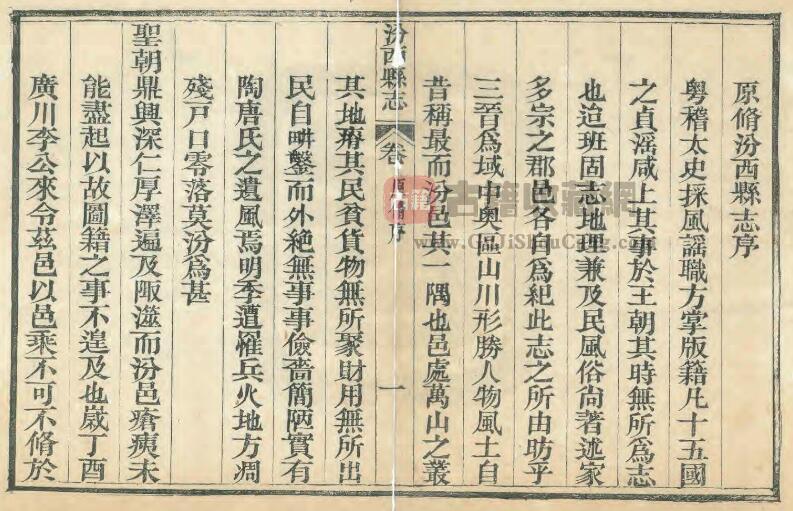 原脩汾西縣志序
粵稽太史採風謡職方掌版籍凡十五國
之貞滛咸上其事於王朝其時無所爲志
也迨班固志地理兼及民風俗尙著述家
多宗之郡邑各自爲紀此志之所由昉乎
三晉爲域中奧區山川形勝人物風土自
昔稱最而汾邑其一隅也邑處萬山之叢
汾西縣志 卷 原 序 一
其地瘠其民貧貨物無所聚財用無所出
民自畊鑿而外絶無事事儉嗇簡陋實有
陶唐氏之遺風焉明季遭罹兵火地方凋
殘戸口零落莫汾爲甚
聖朝鼎興深仁厚澤遍及陬澨而汾邑瘡痍未
能盡起以故圖籍之事不遑及也歲丁酉
廣川李公來令茲邑以邑乘不可不脩於
古籍收藏網
www.GuJiShuCang.com